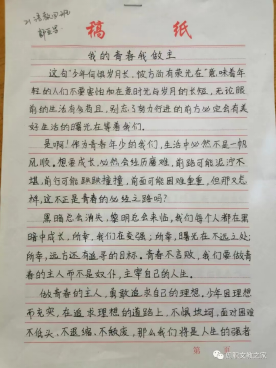 稿 纸
我的青春我做主
这句"少年何惧岁月长，彼方尚有荣光在"意味着年
轻的人们不要害怕和在意时光与岁月的长短，无论眼
前的生活有多苟且，别忘了努力行进的前方必定会有美
好生活的曙光在等着我们。
是啊！作为青春年少的我们，生活中必然不是一帆
风顺。想要成长，必然会经历磨难，前路可能泥泞不
堪，前行可能跌跌撞撞，前面可能困难重重，但那又怎
样，这不正是青春的必经之路吗？
黑暗总会消失，黎明总会来临，我们每个人都在黑
暗中成长，所幸，我们在变强，所幸，曙光在不远之处；
所幸，远方还有追寻的目标。青春不言败，我们要做青
春的主人而不是奴仆，主宰自己的人生。
做青春的主人，勇敢追求自己的理想。少年因理想
而充实，在追求理想的道路上，不惧坎坷，面对困难
不低头，不退缩，不颓废，那么我们将是人生的强者
第 页